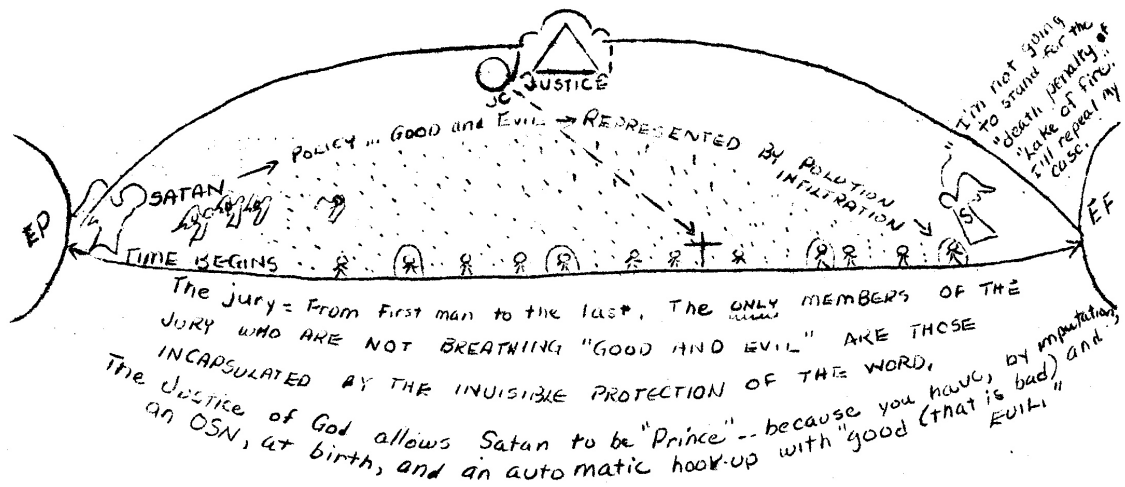 JUSTICE
JC
I'm not going
to stand for the
"death penalty of
"Lake of fire."
I'll repeal my
case.
POLICY ... GOOD and EVIL → REPRESENTED BY POLUTION
INFILTRATION
SATAN
S
EP
EF
TIME BEGINS
The jury = From First man to the last. The ONLY MEMBERS OF THE
JURY WHO ARE NOT BREATHING "GOOD AND EVIL" ARE THOSE
INCAPSULATED BY THE INVISIBLE PROTECTION OF THE WORD.
The Justice of God allows Satan to be "Prince" -- because you have, by imputation,
an OSN, at birth, and an automatic hook-up with "good (that is bad) and
EVIL."